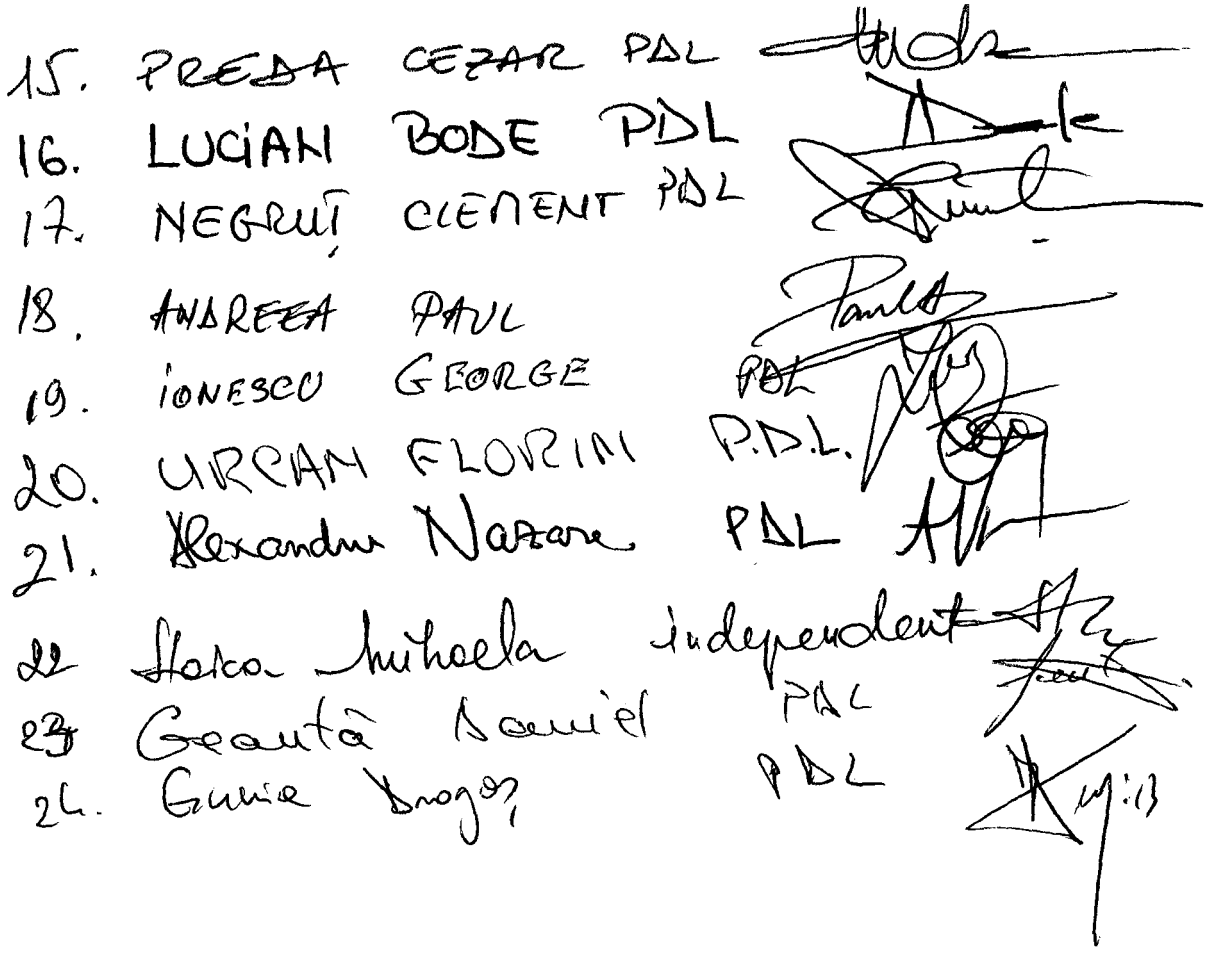 15. PREDA CEZAR PDL
16. LUCIAN BODE PDL
17. NEGRUȚ CLEMENT PDL
18. ANDREEA PAUL PaulA
19. IONESCU GEORGE PDL
20. URCAN FLORIN P.D.L.
21. Alexandru Nazare PDL
22 Stoica Mihaela independent
23 Geantă Daniel PDL
24. Gunia Dragoș PDL